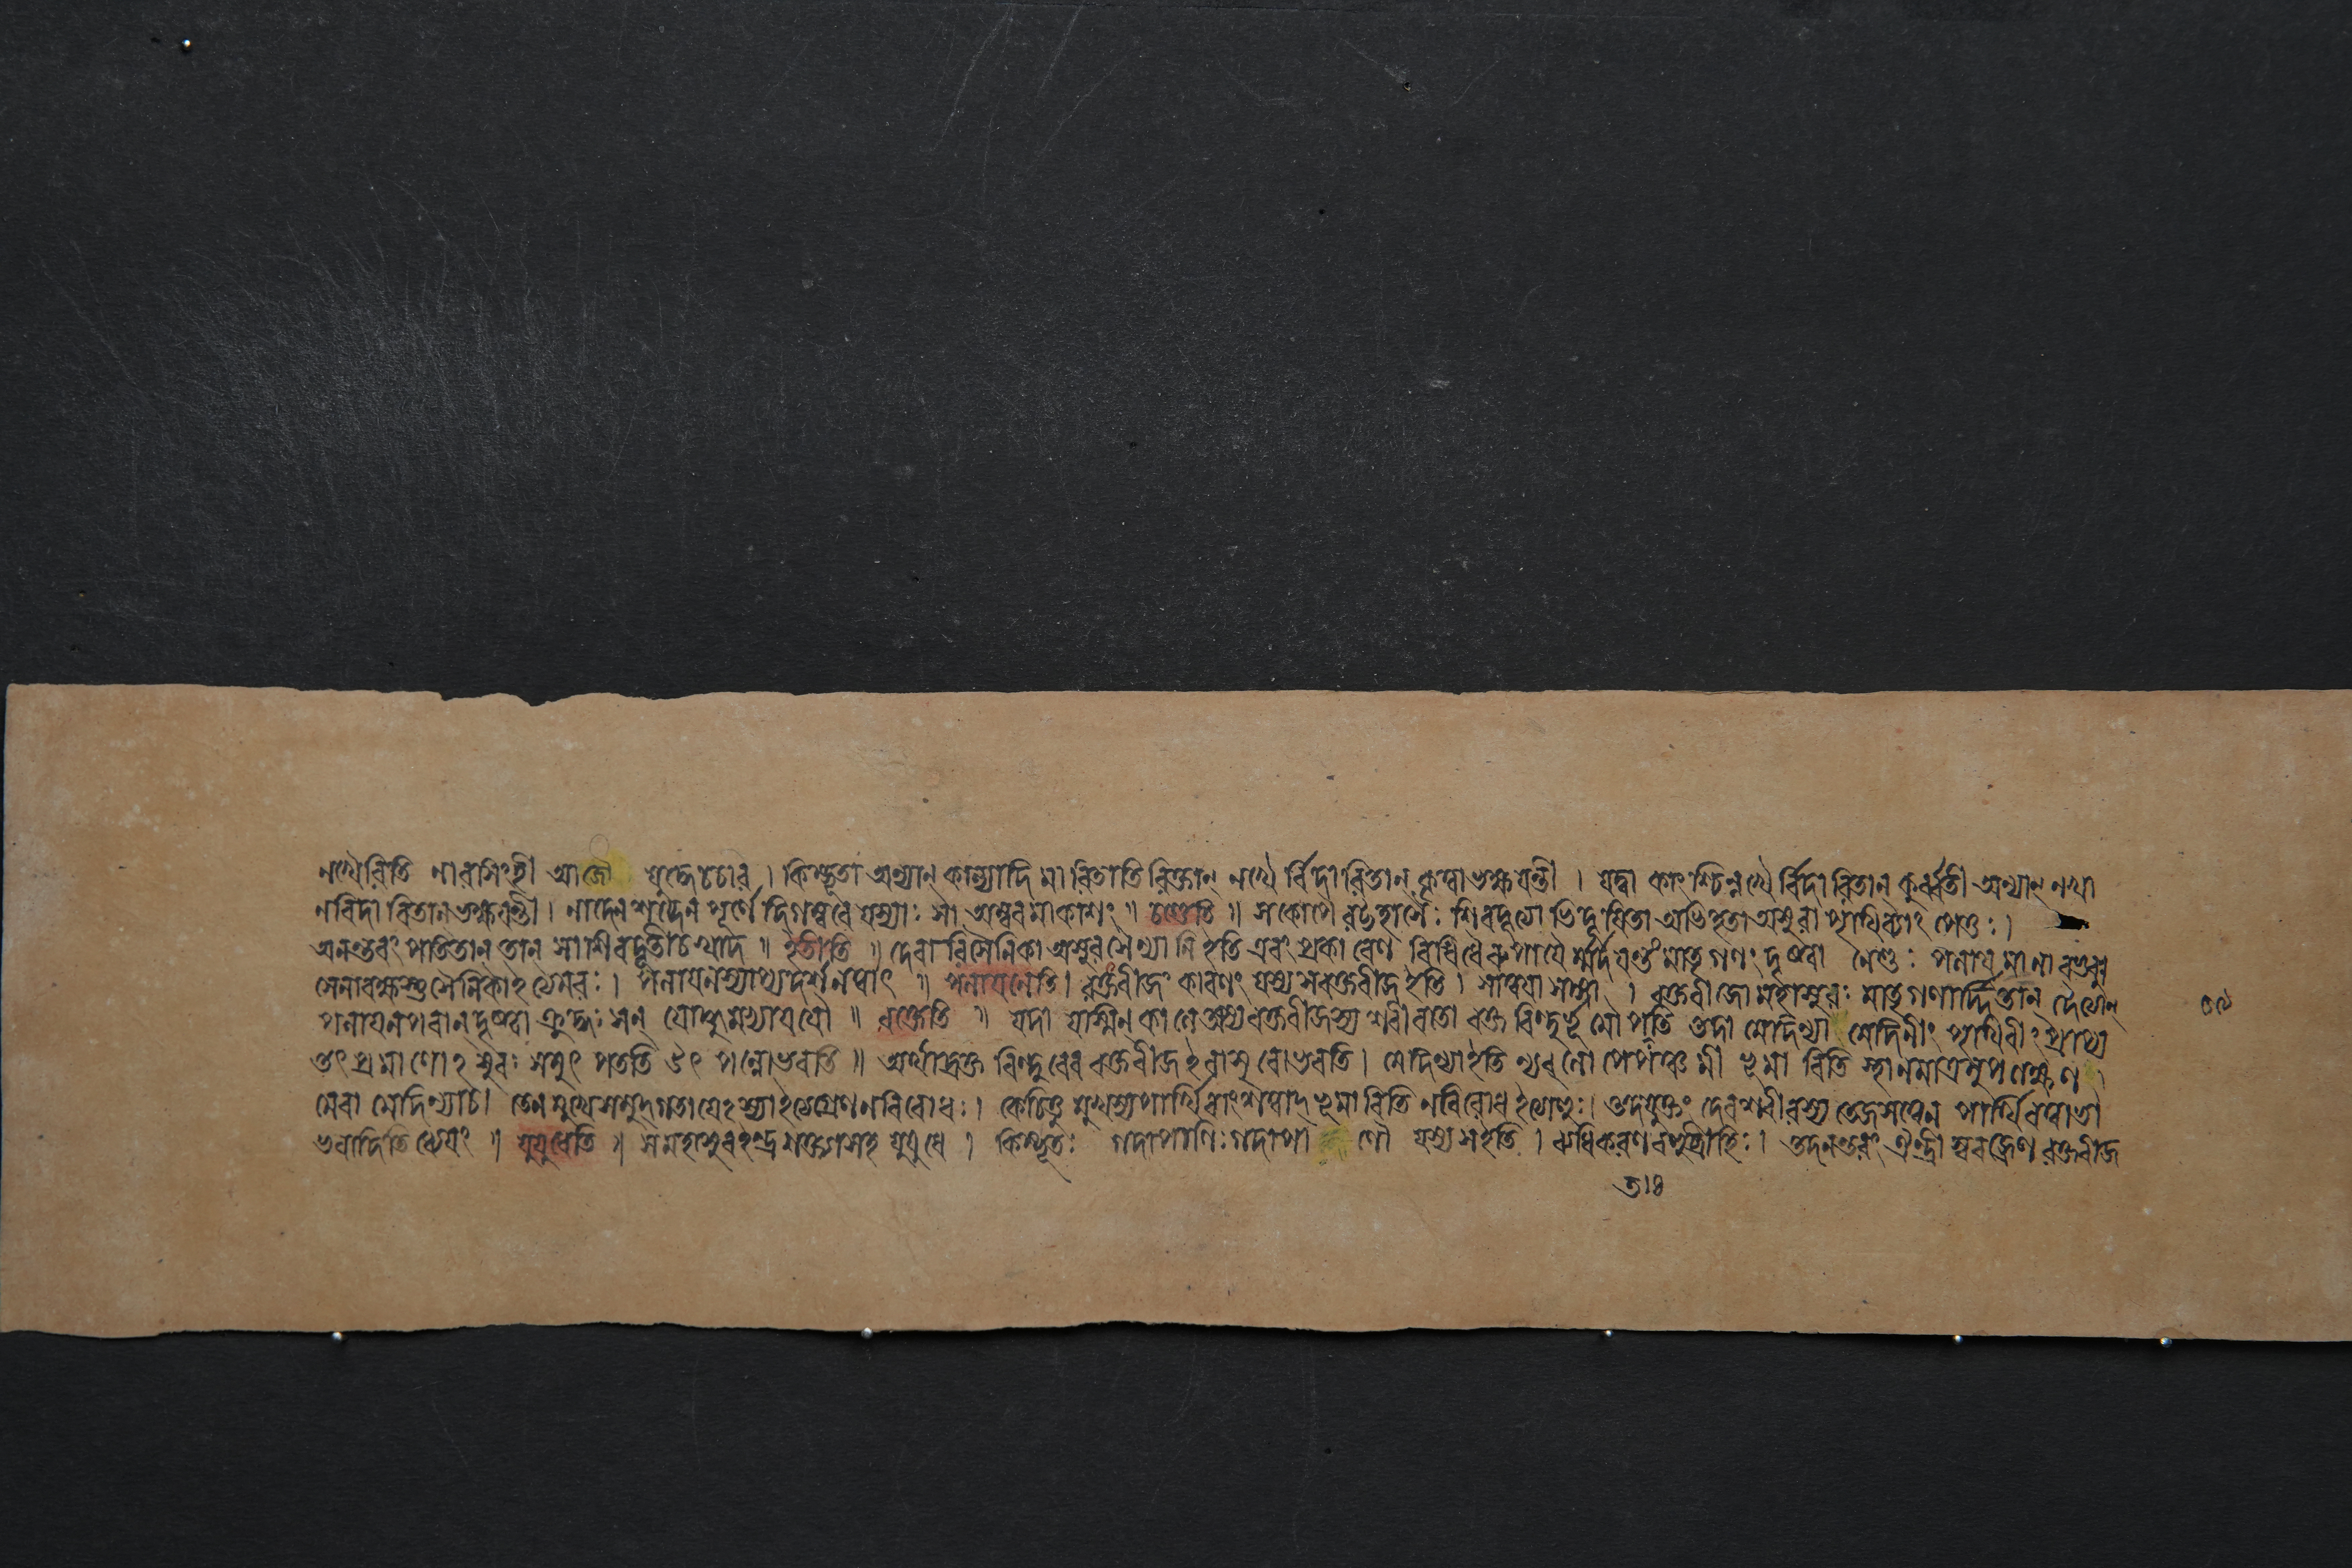 নখৈরিতি নারসিংহী আজৌ যুদ্ধে চচার । কিম্ভূতা অন্যান্ কাংশ্চাদি মারিতাতিরিক্তান্ নখৈর্বিদারিতান্ কৃত্বা ভক্ষয়ন্তী । যদ্বা কাংশ্চিন্নখৈর্বিদারিতান্ কুর্ব্বতী অন্যান্ নখা
নবিদারিতান ভক্ষয়ন্তী । নাদেন শব্দেন পূর্ণে দিগম্বরে যস্যাঃ সা অম্বরমাকাশং ॥ চণ্ডেতি ॥ সকোপৈরট্টহাসৈঃ শিবদূত্যোভিদূষিতা অভিহতা অসুরা পৃথিব্যাং পেতুঃ ।
অনন্তরং পতিতান্ তান্ সা শিবদূতী চখাদ ॥ ইতীতি ॥ দেবারিসৈনিকা অসুরসৈন্যানি ইতি এবং প্রকারেণ বিবিধৈরুপায়ৈর্ম্মর্দয়ন্তং মাতৃগণং দৃষ্ট্বা নেশুঃ পলায়মানা বভূবুঃ
সেনারক্ষস্তু সৈনিকা ইত্যমরঃ । পলায়নস্যাপ্যদর্শনত্বাৎ ॥ পলায়নেতি । রক্তং বীজং কারণং যস্য স রক্তবীজ ইতি । সান্বয়া সংজ্ঞা । রক্তবীজো মহাসুরঃ মাতৃগণার্দ্দিতান্ দৈত্যান্
পলায়নপরান্ দৃষ্ট্বা ক্রুদ্ধঃ সন্ যোদ্ধুমভ্যাযযৌ ॥ রক্তেতি ॥ যদা যস্মিন্ কালে অস্য রক্তবীজস্য শরীরতো রক্তবিন্দুর্ভূমৌ পততি তদা মেদিন্যা মেদিনীং পৃথিবীং প্রাপ্য
তৎপ্রমাণোঽসুরঃ সমুৎপততি উৎপন্নো ভবতি ॥ অর্থাদ্রক্তবিন্দুরেব রক্তবীজ ইবাসুরো ভবতি । মেদিন্যা ইতি ল্যব্লোপে পঞ্চমী ভূমাবিতি স্থানমাত্রমুপলক্ষণ
মেবা মেদিন্যাচ । তেন মুখে সমুদ্গতা যেঽস্যা ইত্যগ্রেণ ন বিরোধঃ । কেচিত্তু মুখস্যপার্থিবাংশত্বাদ্ ভূমাবিতি ন বিরোধ ইত্যাহুঃ । তদযুক্তং দেবশরীরস্য তেজসত্বেন পার্থিবত্বাভা
বাদিতি ধ্যেয়ং ॥ যুযুধেতি ॥ স মহাসুর ইন্দ্রশক্ত্যা সহ যুযুধে । কিম্ভূতঃ গদাপাণিঃ গদা পাণৌ যস্য স ইতি । ব্যধিকরণবহুব্রীহিঃ । তদনন্তরং ঐন্দ্রী স্ববজ্রেণ রক্তবীজ